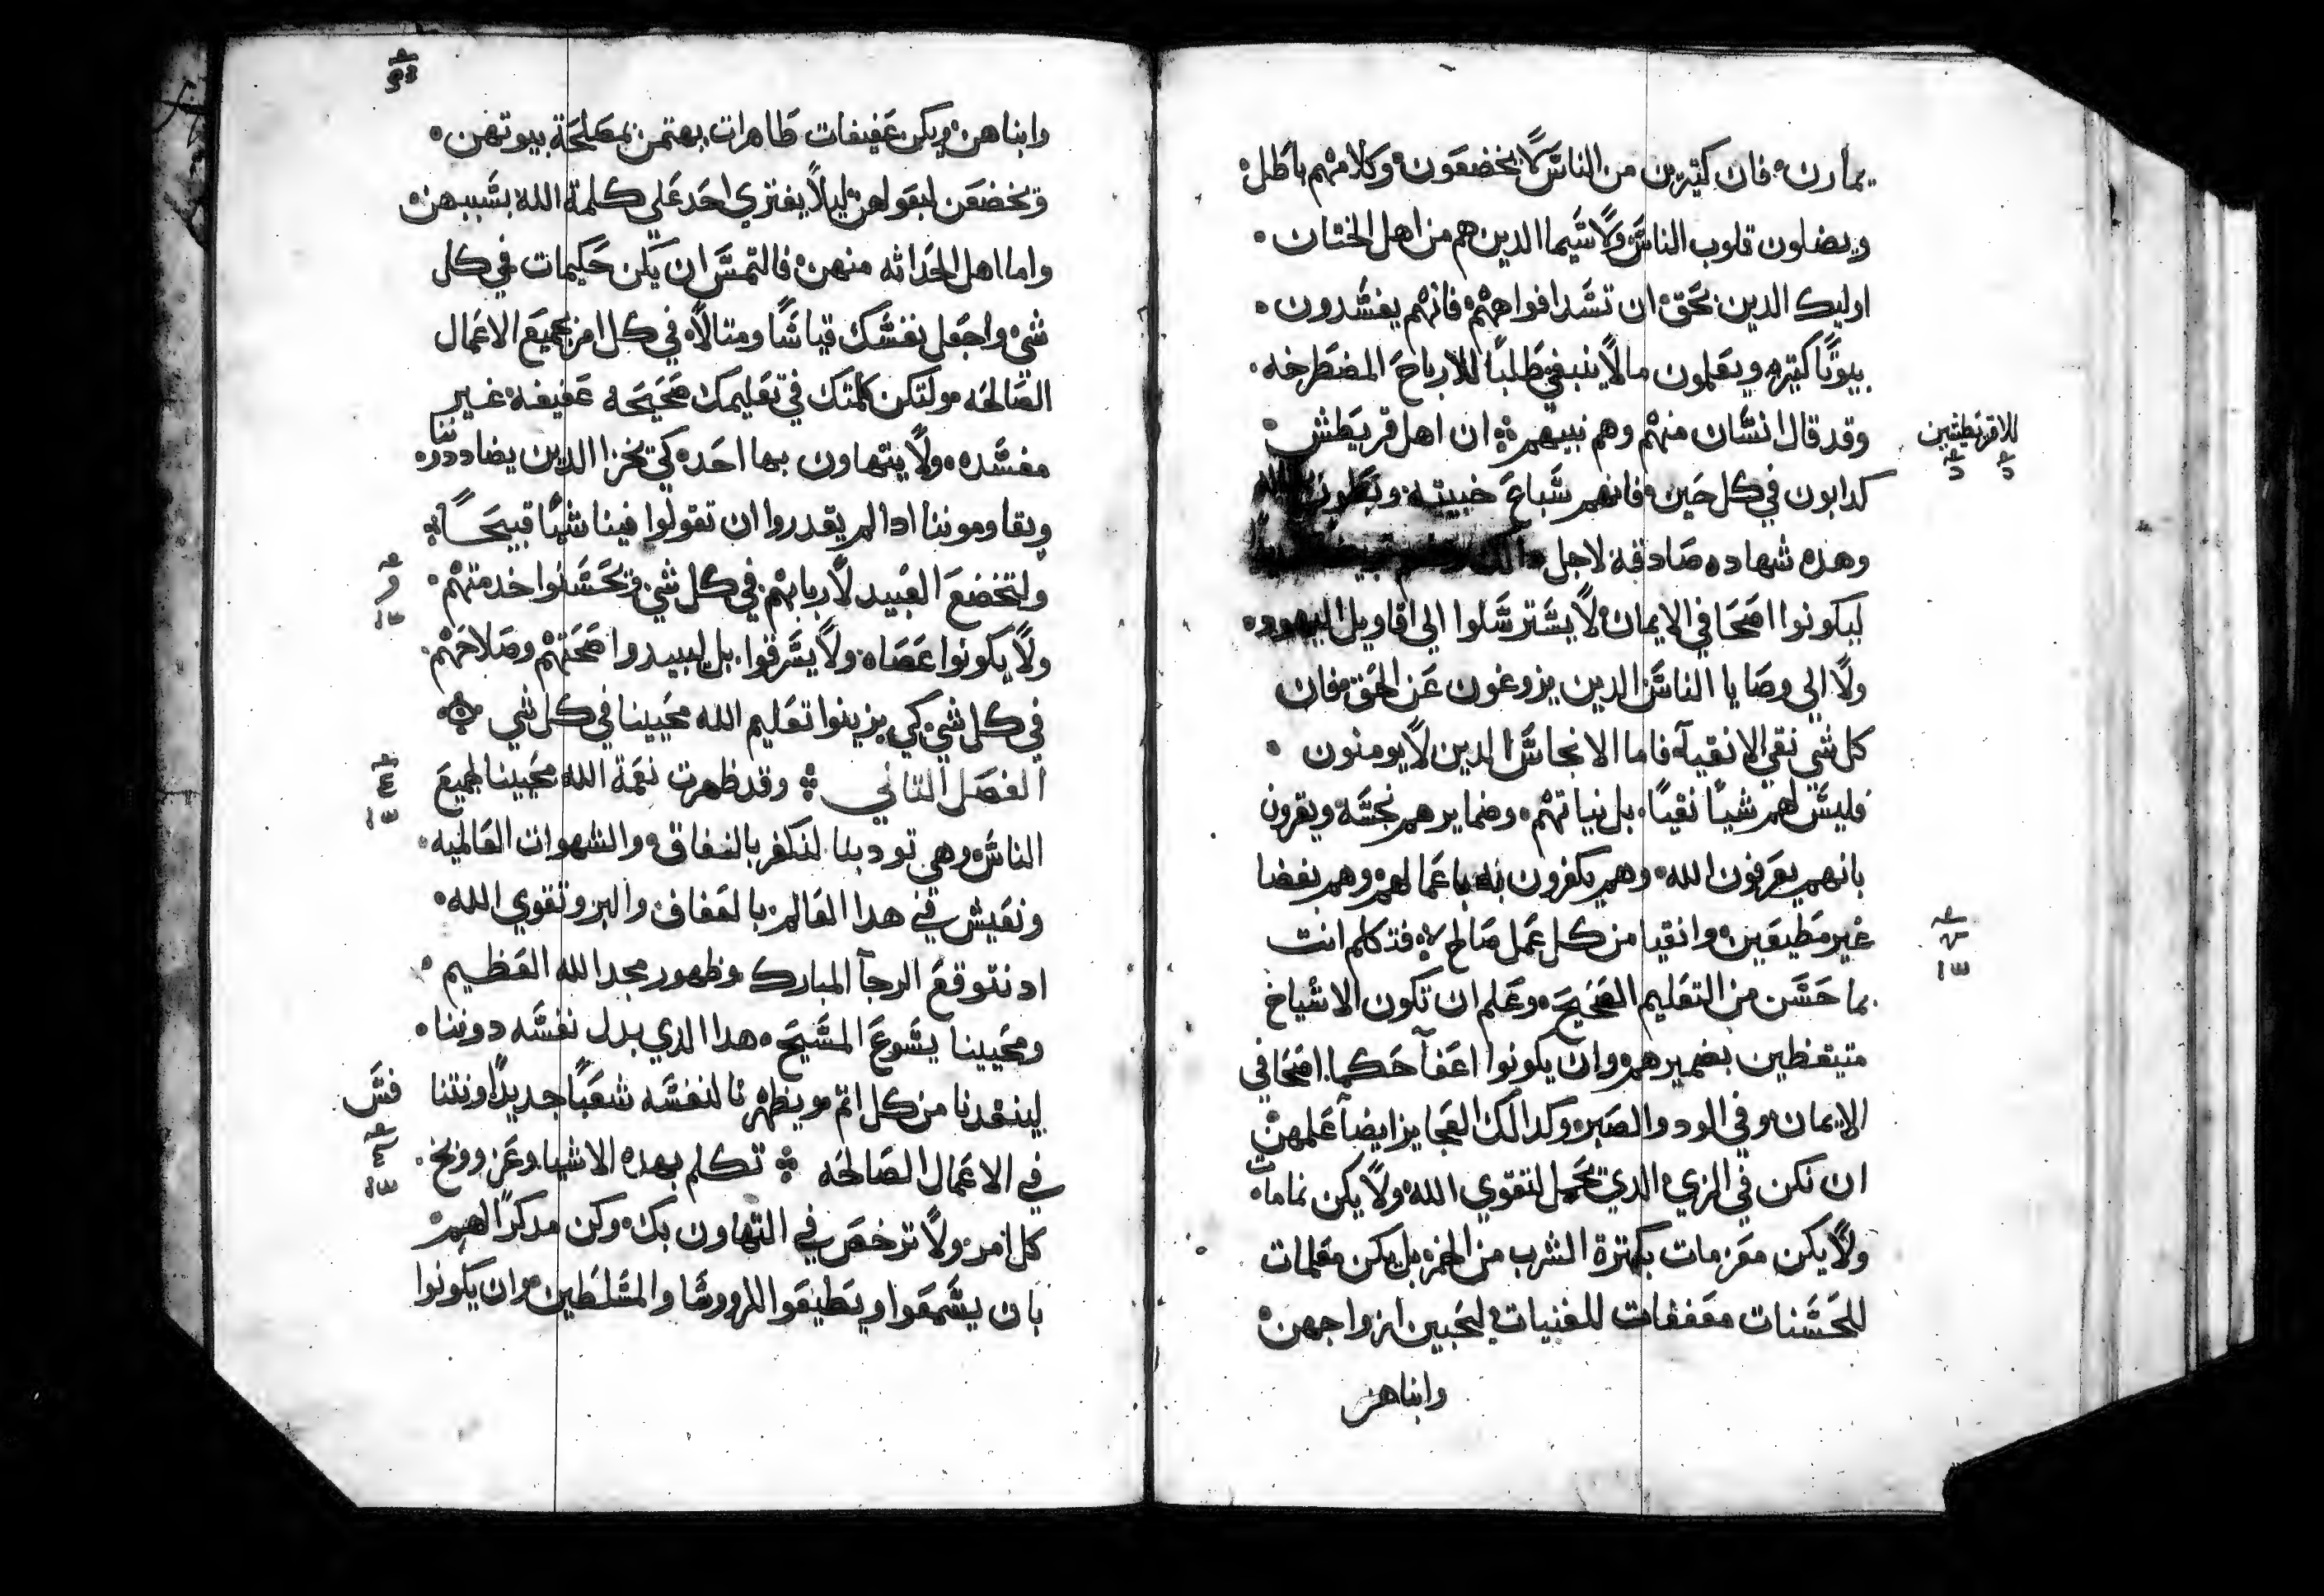 يمارن فان كتيرين من الناس لا يخضعون وكلامهم باطل
ويضلون قلوب الناس ولا سيما الدين هم من اهل الختان
اوليك الدين يحق ان تسد افواههم فانهم يفسدون
بيوتا كتيره ويعلمون ما لا ينبغي طلبا للارباح
وقد قال انسان منهم وهم نبيهم ان اهل قريطش
للاقريطشين
كدابون في كل حين فانهم سباع خبيته
وهده شهاده صادقه لاجل
ليكونوا اصحا في الايمان لا يسترسلوا الي اقاويل اليهود
ولا الي وصايا الناس الدين يزوغون عن الحق فان
كل شي نقي الانقيآ فاما الانجاس الدين لا يومنون
فليس لهم شيا نقيا بل نياتهم وضمايرهم نجسه ويقرون
بانهم يعرفون الله وهم يكفرون به باعمالهم وهم بغضا
غير مطيعين وانقيا من كل عمل صالح فتكلم انت
بما حسن من التعليم الصحيح وعلم ان تكون الاشياخ
متيقظين بضميرهم وان يكونوا اعفآ حكما اصحا في
الايمان وفي الود والصبر وكدالك العجايز ايضا علمهن
ان تكن في الزي الدي يجمل لتقوي الله ولا يكن نمامات
ولا يكن مغرمات بكترة الشرب من الخمر بل يكن معلمات
للحسنات معففات للفتيات ليحبين ازواجهن
وابناهن
وابناهن ويكن عفيفات طاهرات يهتمن بمصلحة بيوتهن
ويخضعن لبعولهن ليلا يفتري احد علي كلمة الله بسببهن
واما اهل الحداثه منهن فالتمس ان يكن حكيمات في كل
شي واجعل نفسك قياسا ومتالا في كل امر بجميع الاعمال
الصالحه ولتكن كلمتك في تعليمك صحيحه عفيفه غير
مفسده ولا يتهاون بها احد كي يخزا الدين يضاددوننا
ويقاوموننا ادا لم يقدروا ان تقولوا فينا شيا قبيحا
ولتخضع العبيد لاربابهم في كل شي ويحسنوا خدمتهم
ولا يكونوا عصاه ولا يسرقوا بل ليبيدوا صحتهم وصلاحهم
في كل شي كي يزينوا تعليم الله محيينا في كل شي
الفصل التاني وقد ظهرت نعمة الله محيينا لجميع
الناس وهي تودبنا لنكفر بالنفاق والشهوات العالميه
ونعيش في هدا العالم بالعفاف والبر وتقوي الله
اد نتوقع الرجآ المبارك وظهور مجد الله العظيم
ومحيينا يسوع المسيح هدا الدي بدل نفسه دوننا
لينقدنا من كل اتم ويطهرنا لنفسه شعبا جديدا
في الاعمال الصالحه تكلم بهده الاشيا وعز ووبخ
كل امر ولا ترخص في التهاون بك وكن مدكرا لهم
بان يسمعوا ويطيعوا للرووسا والمسلطين وان يكونوا